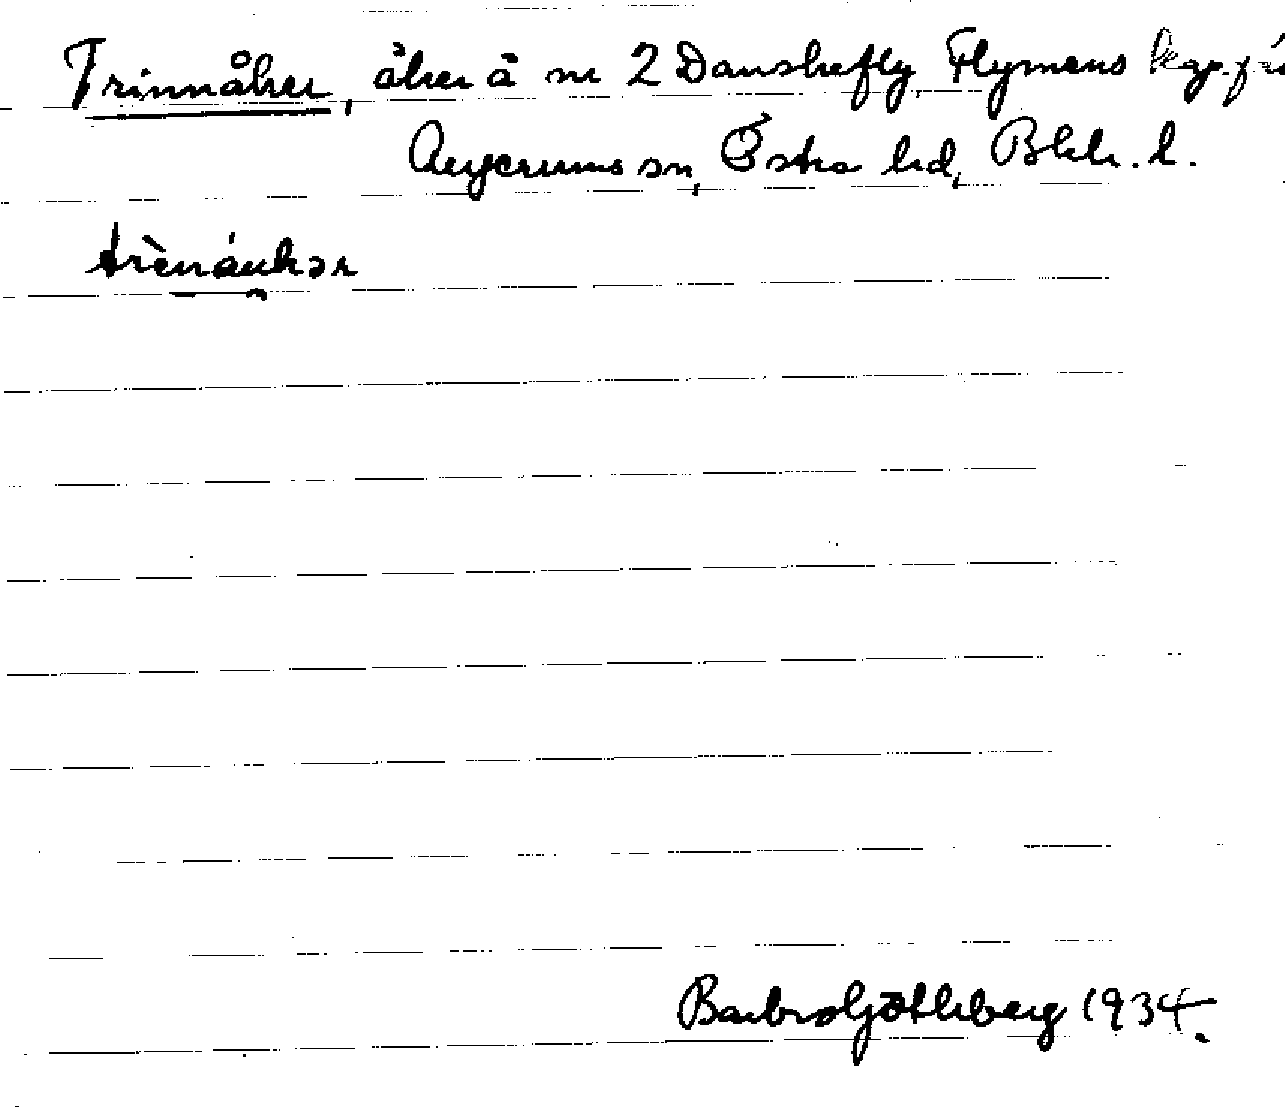 Trinnåker, åker å nr 2 Danskefly, Flymens kgp. f
Augerums sn, Östra hd, Blek. l.
trènáukər
Barbro Götheberg 1934.